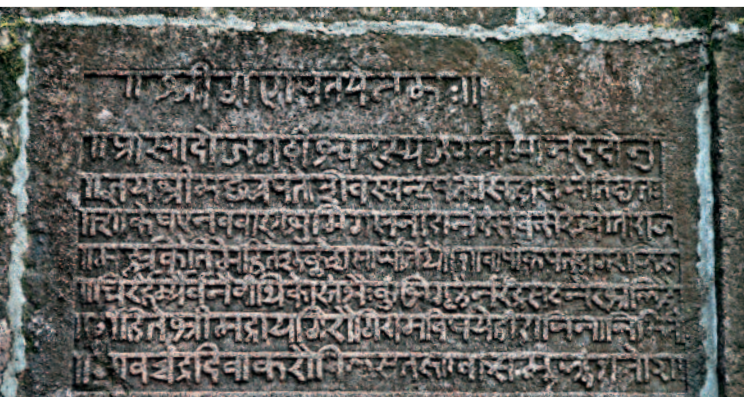 ॥ श्रीगणपतयेनमः॥
॥प्रासादोजगदीश्वरस्यजगतामानंददोनु
॥ज्ञयाश्रीमछत्रपतेःशिवस्यनृपतेःसिंहासनेतिष्ठतः
॥शाकेषण्णवबाणभूमिगणनादानंदसंवत्सरेज्योतिराज
॥मुहूर्तकीर्तिमहितेशुक्लेशसार्पेतिथौवापीकूपतडागराजिरु
॥चिरंरम्यंवनं
श्रीमद्रायगिरौगिरामविषयेहीराजिनानिर्मितो
॥यावच्चंद्रदिवाकरौविलसतस्तावत्समुज्जृंभते